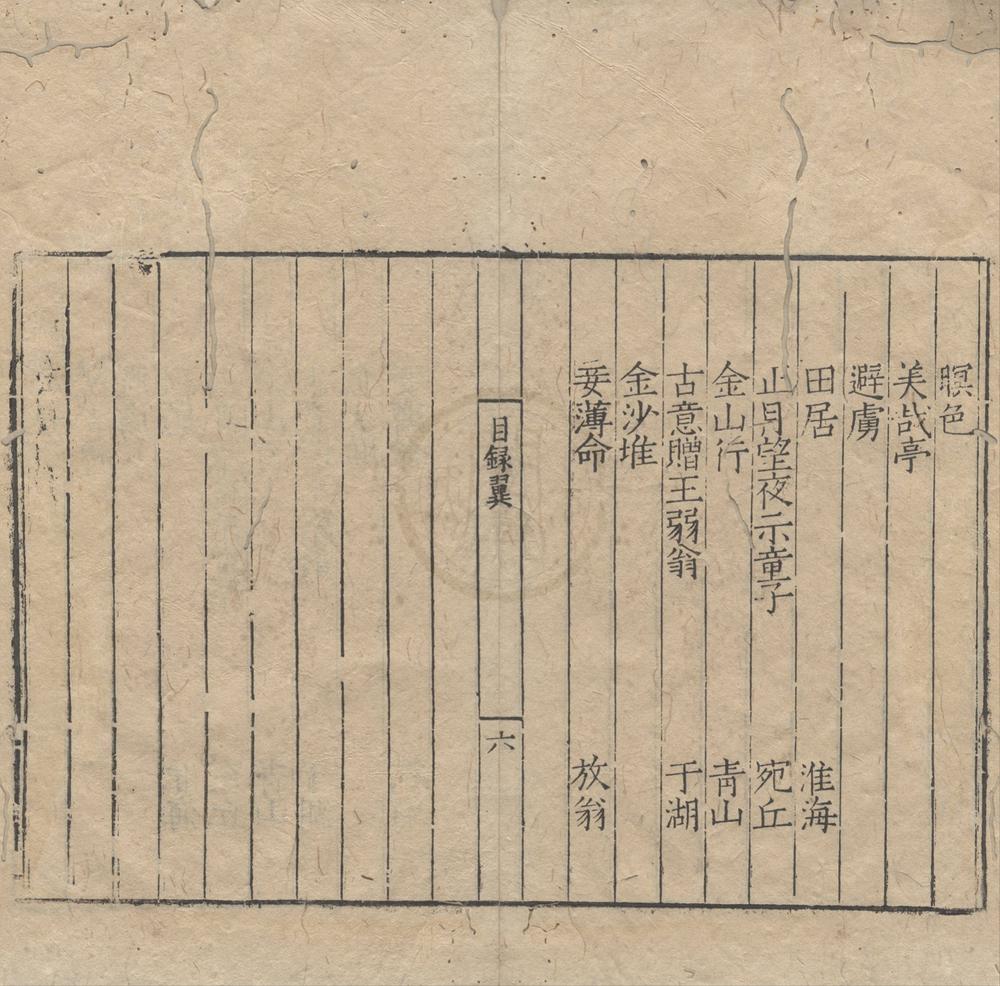 暝色
美哉亭
避虜
田居 淮海
正月望夜示童子 宛丘
金山行 青山
古意贈王弱翁 于湖
金沙堆
妾薄命 放翁
目録翼 六